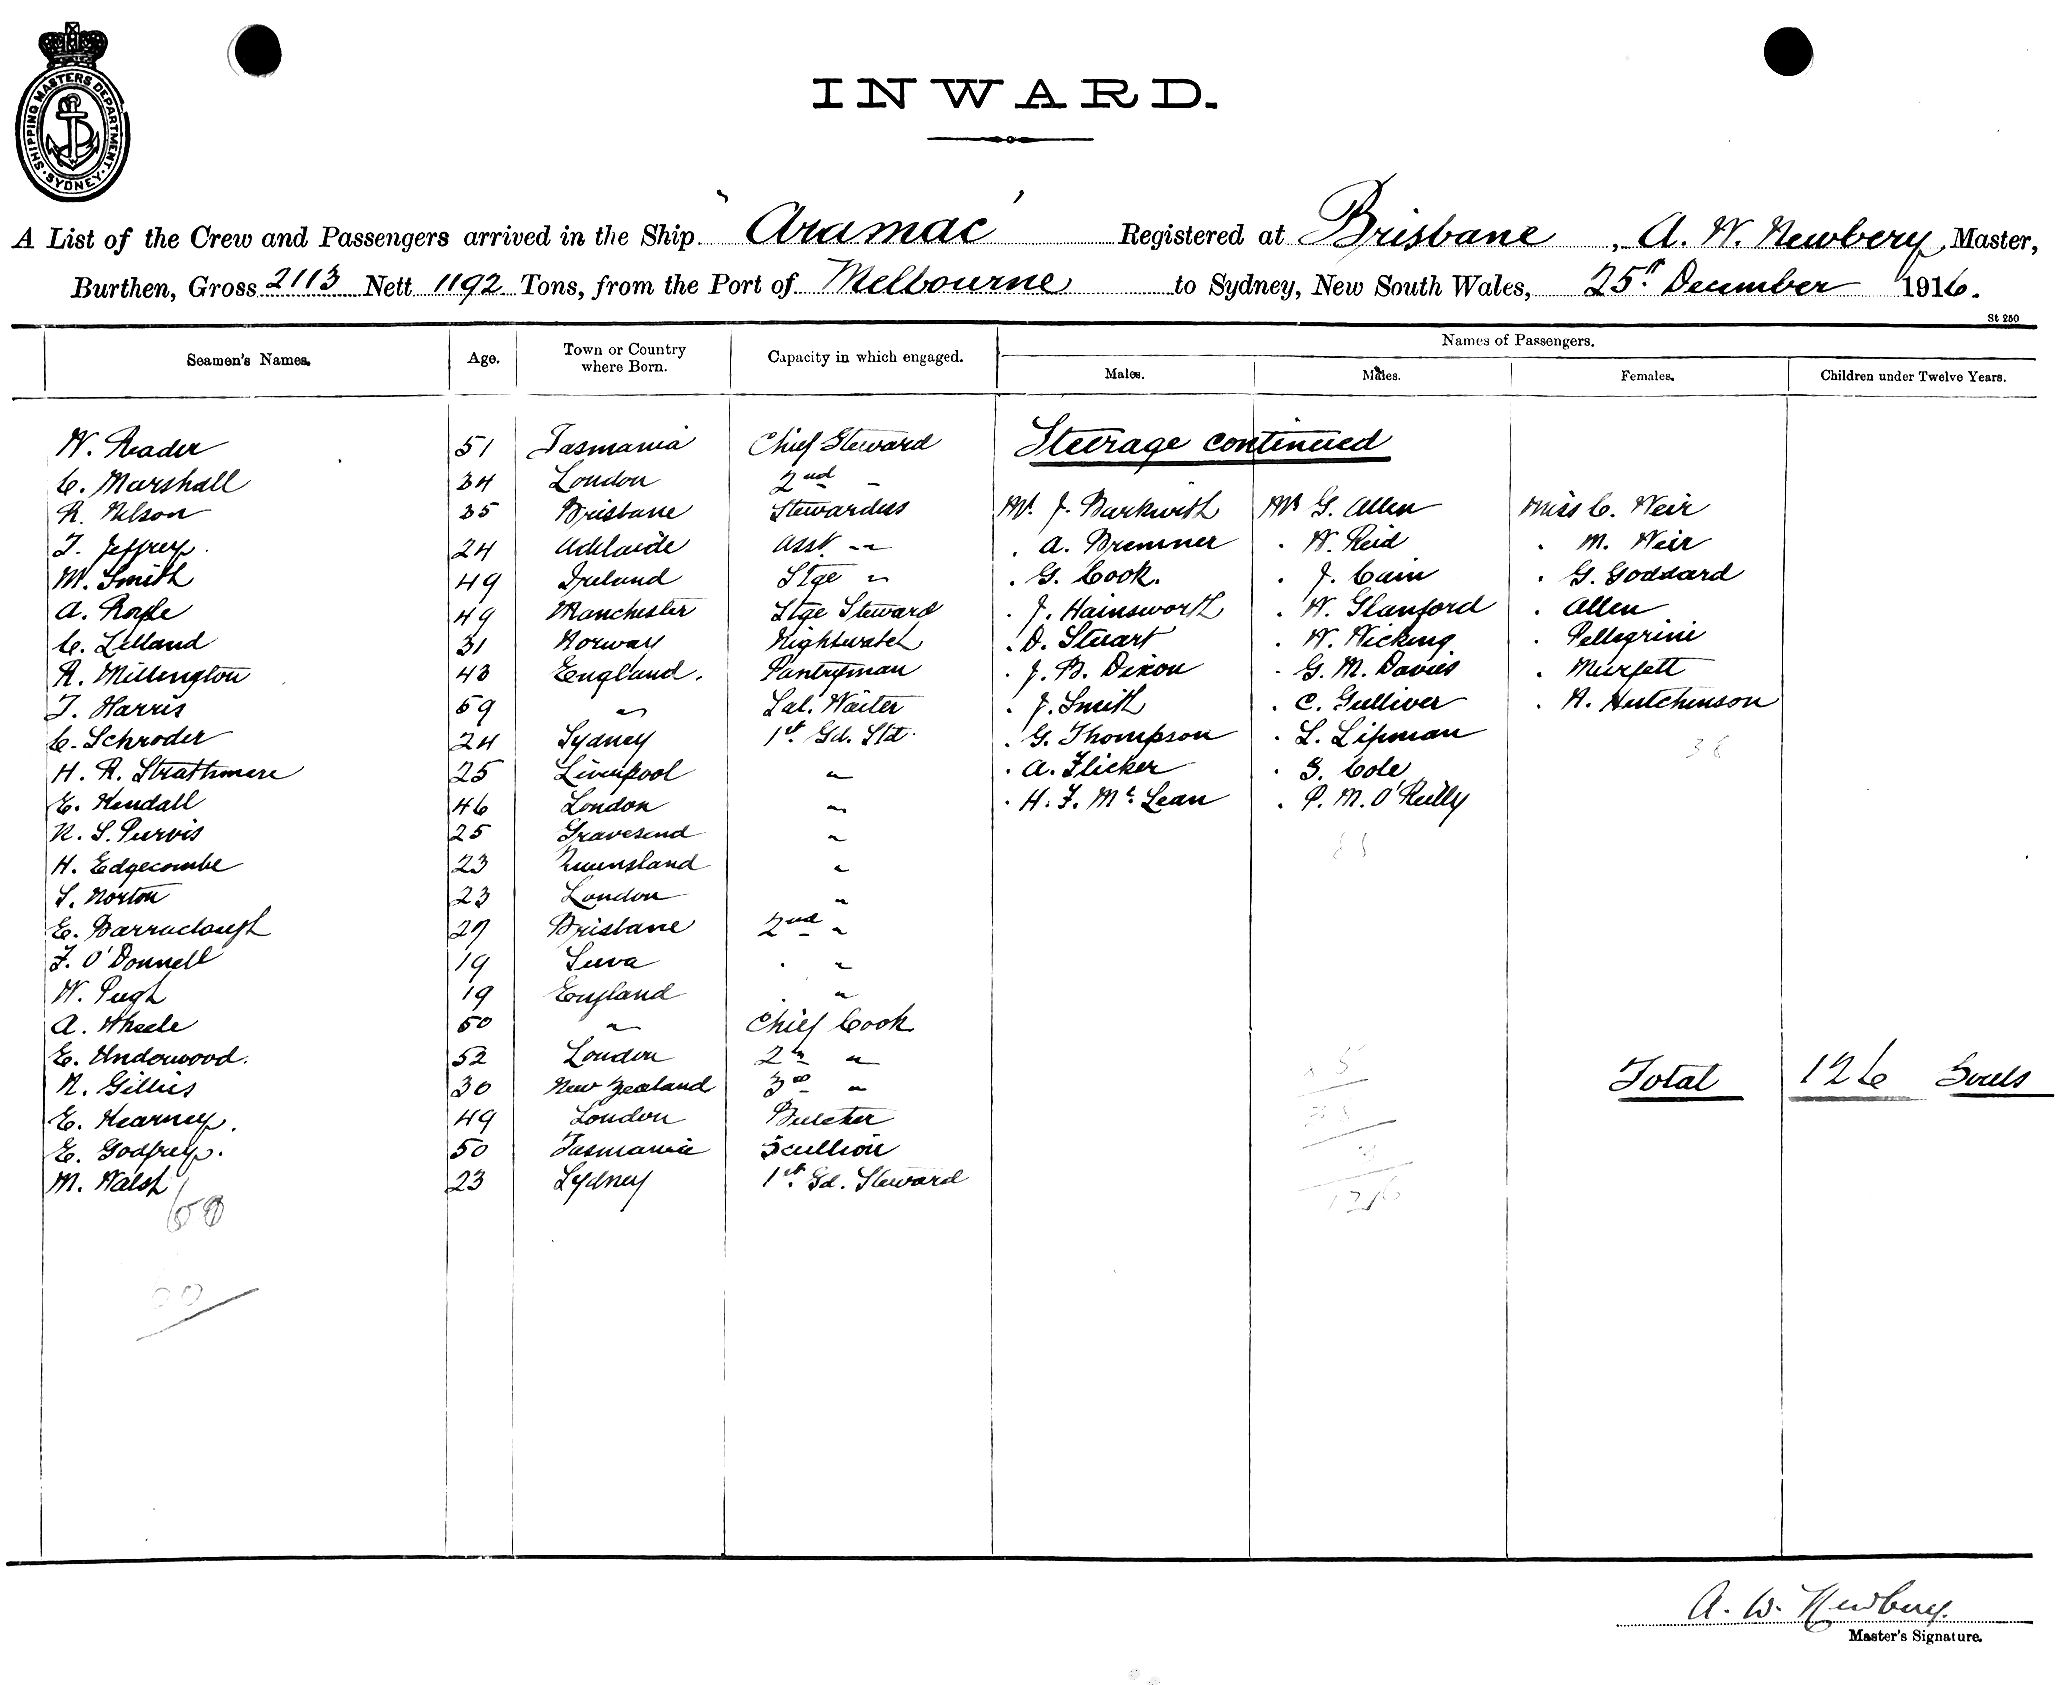 SHIPPING MASTERS DEPARTMENT. SYDNEY.
INWARD.
A List of the Crew and Passengers arrived in the Ship "Aramac" Registered at Brisbane, A. W. Newbery, Master,
Burthen, Gross 2113 Nett 1192 Tons, from the Port of Melbourne to Sydney, New South Wales, 25th December 1916.
St 250
Names of Passengers.
Seamen's Names. Age. Town or Country where Born. Capacity in which engaged. Males. Males. Females. Children under Twelve Years.
W. Reader 51 Tasmania Chief Steward Steerage continued
C. Marshall 34 London 2nd "
R. Nelson 35 Brisbane Stewardess Mr. J. Barkwith Mr G. Allen Miss C. Weir
T. Jeffrey 24 Adelaide Asst. " . A. Bremner . W. Reid . M. Weir
M. Smith 49 Ireland Stge " . G. Cook. . J. Cain . G. Goddard
A. Royle 49 Manchester Stge Steward . J. Hainsworth . W. Stanford . Allen
C. Lelland 31 Norway Nightwatch . D. Stuart . W. Wicking . Pellegrini
R. Millington 43 England. Pantryman . J. B. Dixon . G. M. Davies . Murfett
T. Harris 59 " Sal. Waiter . J. Smith . C. Gulliver . A. Hutchinson
C. Schroder 24 Sydney 1st. Gd. Std. . G. Thompson . L. Lipman
H. R. Strathmere 25 Liverpool " . A. Flicker . S. Cole
E. Kendall 46 London " . H. F. McLean . P. M. O'Reilly
N. S. Purvis 25 Gravesend "
H. Edgecombe 23 Queensland "
S. Norton 23 London "
E. Barraclough 27 Brisbane 2nd "
F. O'Donnell 19 Suva . "
W. Pugh 19 England . "
A. Wheele 50 " Chief Cook
E. Underwood. 52 London 2nd " Total 126 Souls
N. Gillies 30 New Zealand 3rd "
E. Kearney. 49 London Butcher
E. Godfrey. 50 Tasmania Scullion
M. Walsh 23 Sydney 1st. Gd. Steward
126
A. W. Newbery.
Master's Signature.